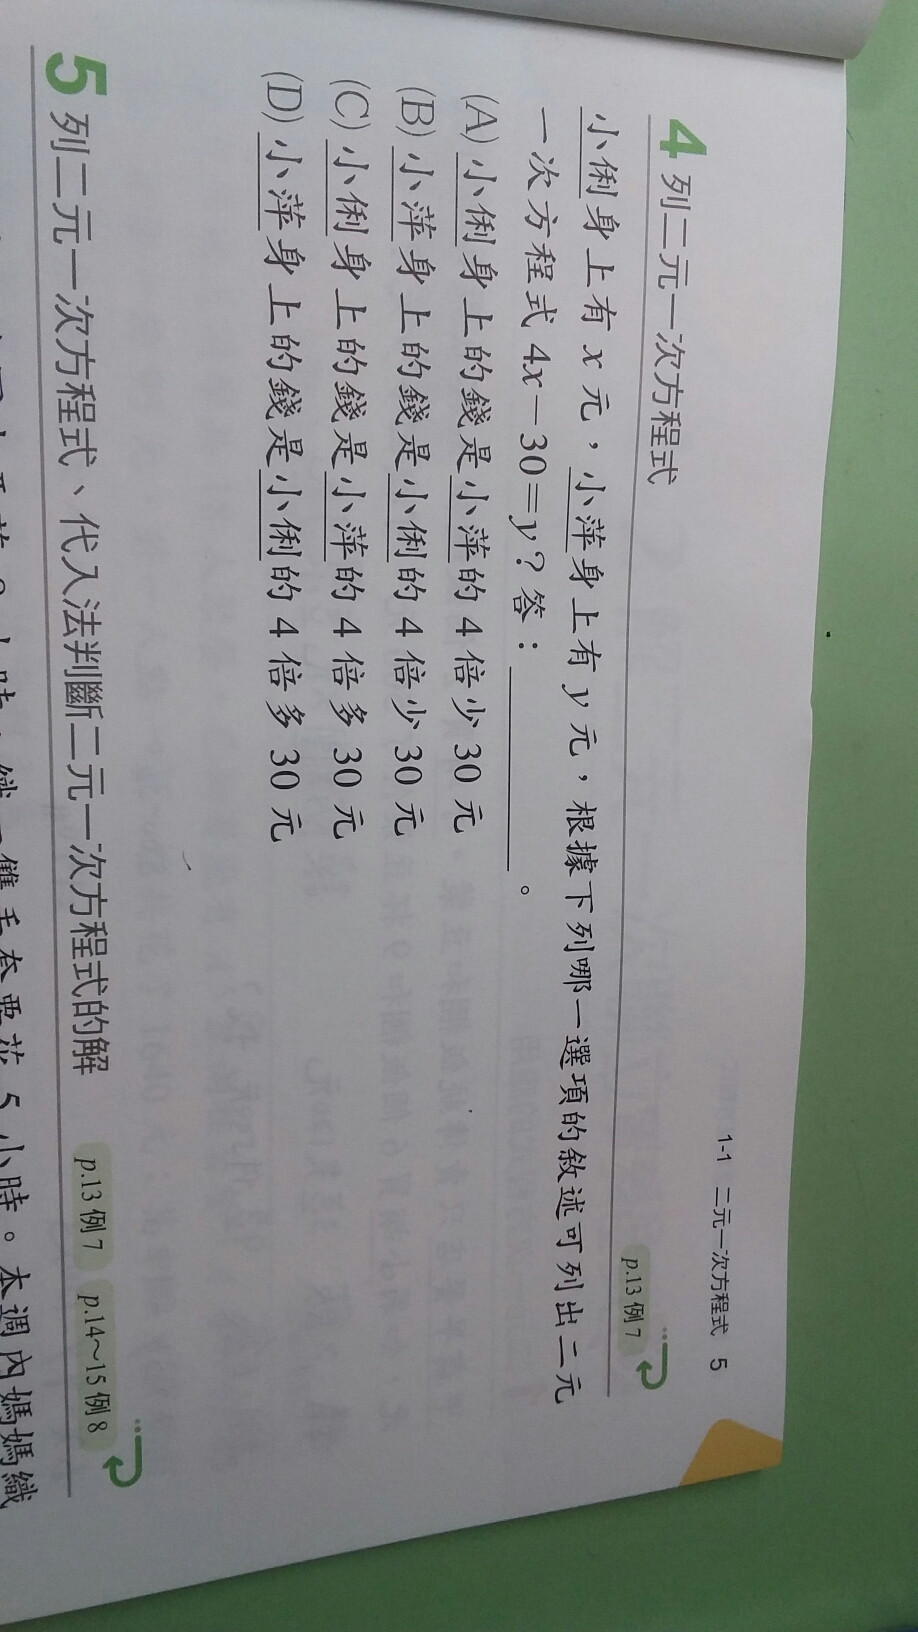 1-1 二元一次方程式 5
4 列二元一次方程式
p.13 例 7
小俐身上有 x 元，小萍身上有 y 元，根據下列哪一選項的敘述可列出二元
一次方程式 4x－30＝y？答：＿＿＿＿＿＿。
(A) 小俐身上的錢是小萍的 4 倍少 30 元
(B) 小萍身上的錢是小俐的 4 倍少 30 元
(C) 小俐身上的錢是小萍的 4 倍多 30 元
(D) 小萍身上的錢是小俐的 4 倍多 30 元
5 列二元一次方程式、代入法判斷二元一次方程式的解
p.13 例 7 p.14～15 例 8
小時。本週內媽媽織